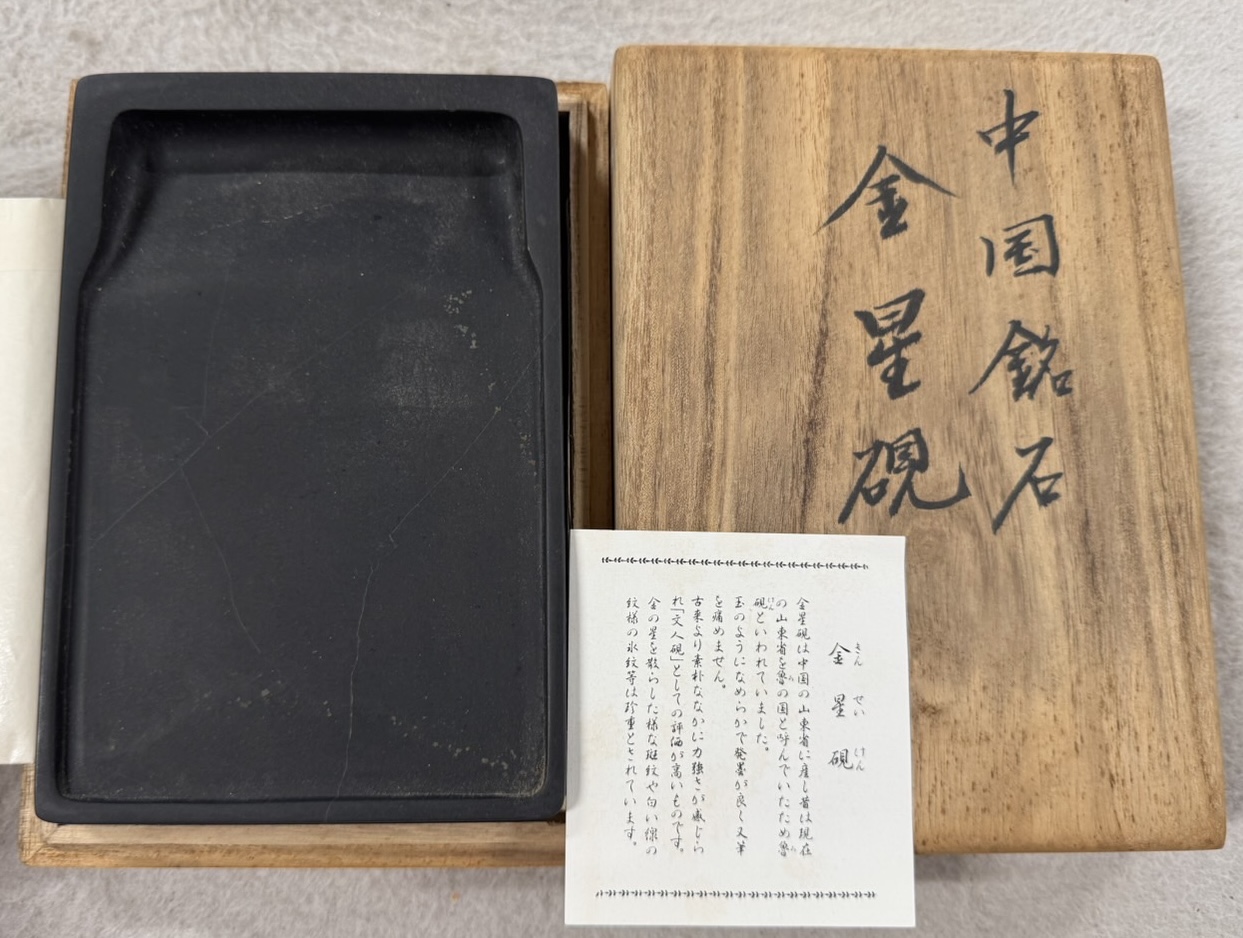 中国銘石
金星硯
金星硯
きんせいけん
金星硯は中国の山東省に産し昔は現在
の山東省を魯の国と呼んでいたため魯
ろ
ろ
硯といわれていました。
けん
玉のようになめらかで発墨が良く又筆
を痛めません。
古来より素朴ななかに力強さが感じら
れ「文人硯」としての評価が高いものです。
金の星を散らした様な斑紋や白い線の
紋様の氷紋等は珍重とされています。